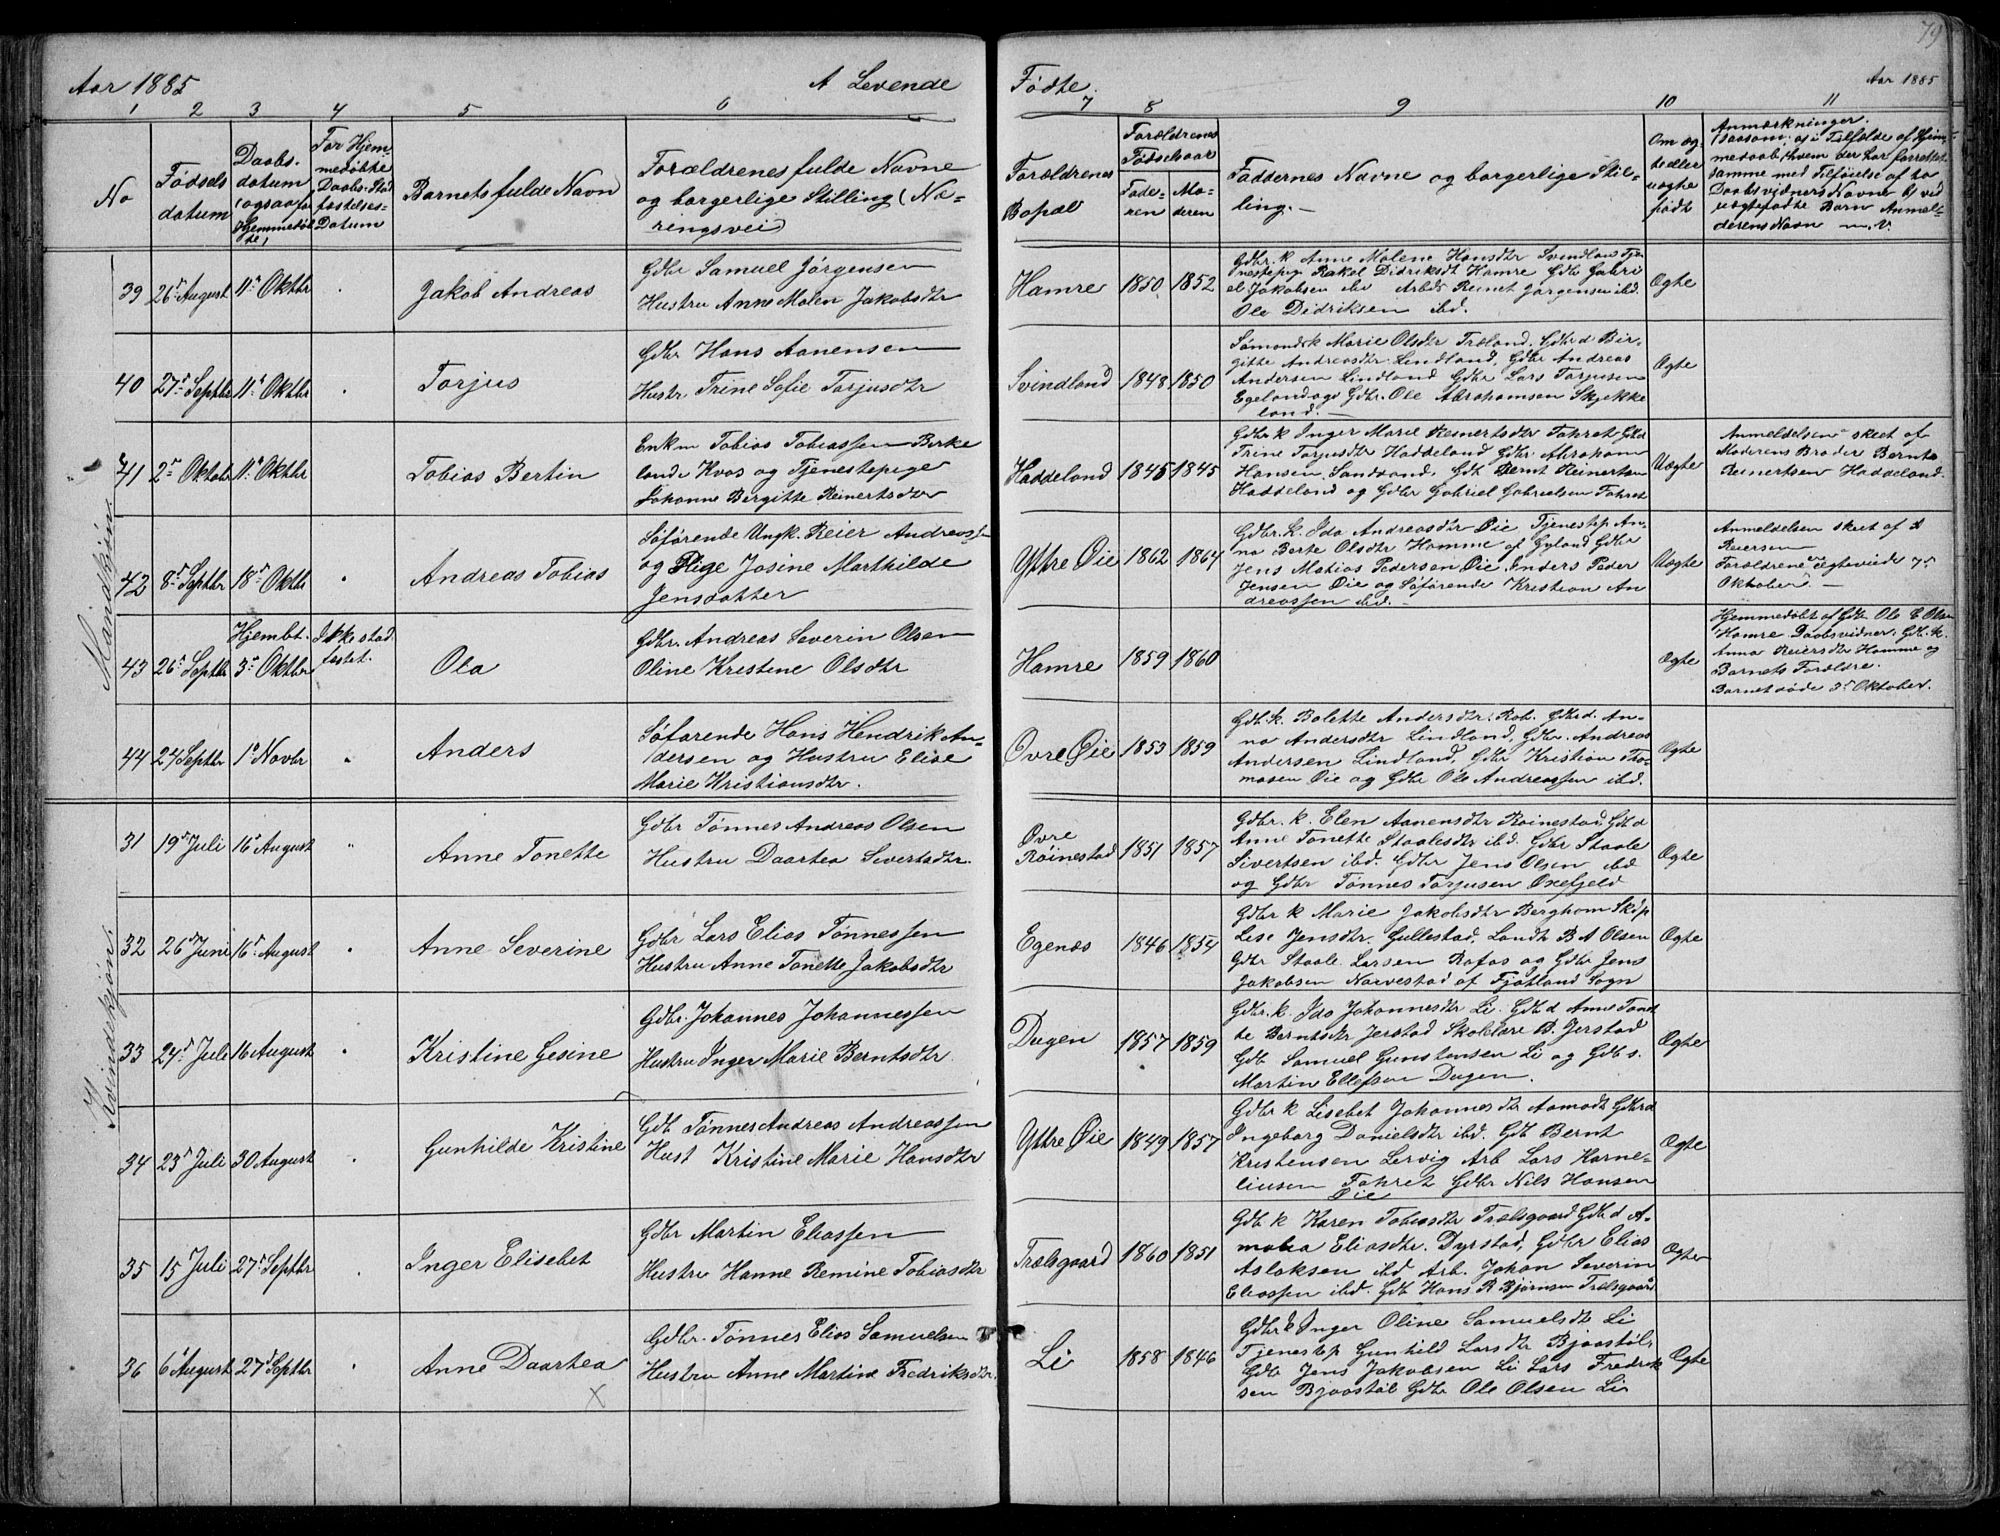 79
Aar 1885
A Levende
Fødte.
Aar 1885
1 2 3 4 5 6 7 8 9 10 11
No
Fødsels
datum
Daabs-
datum
(ogsaa for
Hjemmedøb
te)
For Hjem
medøbte
Daabs-Stad
fæstelses-
Datum
Barnets fulde Navn
Forældrenes fulde Navne
og borgerlige Stilling (Næ-
ringsvei)
Forældrenes
Bopæl
Forældrenes
Fødselsaar
Fade-
ren
Mo-
deren
Faddernes Navne og borgerlige Stil-
ling.
Om æg
te eller
uægte
født
Anmærkninger.
(saasom: a) i Tilfælde af Hjem
medaab, hvem der har forrettet
samme med Tilføielse af to
Daabsvidners Navne b) ved
uægtefødte Børn Anmel-
derens Navn m.v.
Mandkjøn.
39 26r August 11r Oktbr
Jakob Andreas
Gdbr Samuel Jørgensen
Hustru Anne Malen Jakobsdtr
Hamre 1850 1852
Gdbr. k Anne Malene Hansdtr Svindland Tje
nestepig Rakel Didriksdt Hamre Gdb Gabri
el Jakobsen ibd Arbdr Reinet Jørgensen ibd.
Ole Didriksen ibd.
Ægte
40 27r Septbr 11r Oktbr
Torjus
Gdbr Hans Aanensen
Hustr. Trine Sofie Torjusdtr
Svindland 1848 1850
Sømandsk Marie Olsdtr Træland. Gdbrd Bir-
gitte Andreasdtr Lindland, Gdbr Andreas
Andersen Lindland Gdbr Lars Torjusen
Egeland og Gdbr. Ole Abrahamsen Skjekke
land.
Ægte
41 2r Oktobr 11r Oktbr
Tobias Bertin
Enkm Tobias Tobiassen Birke
land i Kvas og Tjenestepige
Johanne Bergitte Reinertsdtr
Haddeland 1845 1845
Gdbr k Inger Marie Reinertsdtr Fahret Gdbrd
Trine Torjusdtr Haddeland Gdbr. Abraham
Hansen Sandland, Gdb Bernt Reinertsen
Haddeland og Gdbr Gabriel Gabrielsen Fahret
Uægte
Anmeldelsen skeet af
Moderens Broder Bernt
Reinertsen Haddeland.
42 8r Septbr 18r Oktbr
Andreas Tobias
Søfarende Ungk. Reier Andreassen
og Pige Josine Marthilde
Jensdatter
Yttre Øie 1862 1864
Gdbr. k. Ida Andreasdtr Øie Tjenestep An-
na Berte Olsdtr Homme af Gyland Gdbr
Jens Matias Pedersen Øie Inders Peder
Jensen Øie og Søfarende Kristian An
dreassen ibd.
Uægte
Anmeldelsen skeet af
Reiersen
Forældrene ere ægteviede 7r
Oktober
43 26r Septbr
Hjembt.
3r Oktbr
Ikke stad
fæstet.
Ola
Gdbr. Andreas Severin Olsen
Oline Kristine Olsdtr
Hamre 1859 1860
Ægte
Hjemmedøbt af Gdbr Ole E Olsen
Hamre Daabsvidner: Gdb. k.
Anna Reiersdtr Homme og
Barnets Forældre.
Barnet døde 3r Oktober.
44 24 Septbr 1r Novbr
Anders
Søfarende Hans Hendrik An-
dersen og Hustru Elise
Marie Kristiansdtr.
Øvre Øie 1853 1859
Gdb. k. Bolette Andersdtr. Gdbrd. An-
na Andersdtr Lindland, Gdbr. Andreas
Andersen Lindland, Gdbr Kristian Tho-
masen Øie og Gdbr Ole Andreassen ibd.
Ægte
Kvindekjøn.
31 19r Juli 16r August
Anne Tonette
Gdbr Tønnes Andreas Olsen
Hustru Daartea Sivertsdtr.
Øvre
Røinestad 1851 1857
Gdbr. k. Elen Aanensdtr Røinestad, Gdb d
Anne Tonette Staalesdtr ibd. Gdbr Staale
Sivertsen ibd. Gdbr Jens Olsen ibd
og Gdbr Tønnes Torjusen Oxefjeld
Ægte
32 26r Juni 16r August
Anne Severine
Gdbr Lars Elias Tønnessen
Hustru Anne Tonette Jakobsdtr
Egenæs 1846 1854
Gdbr k Marie Jakobsdtr Berghom Skdp
Lise Jensdtr. Gullestad, Landh B A Olsen
Gdbr Staale Larsen Rafos og Gdbr Jens
Jakobsen Narvestad af Fjotland Sogn
Ægte
33 24r Juli 16 August
Kristine Gesine
Gdbr. Johannes Johannessen
Hustru Inger Marie Berntsdtr.
Dugen 1857 1859
Gdbr. k. Ida Johannesdtr Li. Gdb d Anne Tonet
te Berntsdtr Jerstad Skolelære B. Jerstad
Gdb Samuel Gunstensen Li og Gdb s.
Martin Ellefsen Dugen.
Ægte
34 23r Juli 30 August
Gunhilde Kristine
Gdb Tønnes Andreas Andreassen
Hust Kristine Marie Hansdtr
Yttre Øie 1849 1857
Gdbr k Lisebet Johannesdtr Aamodt Gdbrd
Ingeborg Danielsdtr ibd. Gdb Bernt
Kristensen Lervig Arb Lars Karne-
liusen Fahret Gdbr Nils Hansen
Øie
Ægte
35 15 Juli 27r Septbr
Inger Elisebet
Gdbr Martin Eliassen
Hustru Hanne Remine Tobiasdtr
Trælsgaard 1860 1851
Gdb k Karen Tobiasdtr Trælsgaard Gdb d A-
malia Eliasdtr. Dyrstad, Gdbr Elias
Aslaksen ibd Arb. Johan Severin
Eliassen ibd. Gdb Hans R Bjørnsen Trælsgaard
Ægte
36 6 August 27r Septbr
Anne Daartea
Gdbr. Tønnes Elias Samuelsen
Hustru Anne Martine Fredriksdtr.
Li 1858 1846
Gdbr k Inger Oline Samuelsdt Li
Tjenestep Gunhild Larsdtr Bjaastøl,
Gdb Jens Jakobsen Li Lars Fredrik
sen Bjaastøl Gdbr Ole Olsen Li
Ægte